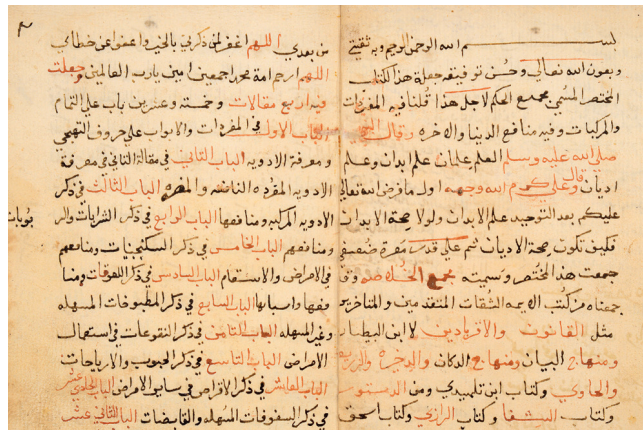 بسم الله الرحمن الرحيم وبه ثقتي
وبعون الله تعالي وحسن توفيقه جعلة هذا الكتاب
المختصر المسمي مجمع الحكم لاجل هذا قلنا فيه المفردات
والمركبات وفيه منافع الدنيا والاخره وقال النبي
صلي الله عليه وسلم العلم علمان علم ابدان وعلم
اديان وقال علي كرم الله وجهه اول ما فرض الله تعالي
عليكم بعد التوحيد علم الابدان ولولا صحة الابدان
فكيف تكون صحة الاديان ثم علي قدر
جمعت هذا المختصر وسميته مجمع
جمعناه من كتب الثقات المتقدمين والمتاخرين
مثل القانون والاقربادين لابن البيطار
ومنهاج البيان ومنهاج الدكان والدخيره
والحاوي وكتاب ابن تلميدي ومن الدستور
وكتاب الشفا وكتاب الرازي وكتاب اسحق
من بعدي اللهم اغفر لمن ذكرني بالخير واعفوا عن خطاي
اللهم ارحم امة محمد اجمعين امين يارب العالمين وجعلت
فيه اربع مقالات وخمسة وعشرين باب علي التمام
الباب الاول في المفردات والابواب علي حروف التهجي
ومعرفة الادويه الباب الثاني في مقالة الثاني في معرفة
الادويه المفرده النافعه والمضره الباب الثالث في ذكر
الادويه المركبه ومنافعها الباب الرابع في ذكر الشرابات والر
بوبات
ومنافعهم الباب الخامس في ذكر السكنجبيات ومنافعهم
في الامراض والاسقام الباب السادس في ذكر اللعوقات ومنا
فعها واسبابها الباب السابع في ذكر المطبوخات المسهله
وغير المسهله الباب الثامن في ذكر النقوعات في استعمال
الامراض الباب التاسع في ذكر الحبوب والايارجات
الباب العاشر في ذكر الاقراص في ساير الامراض الباب الحادي عشر
في ذكر السفوفات المسهله والقابضات الباب الثاني عشر